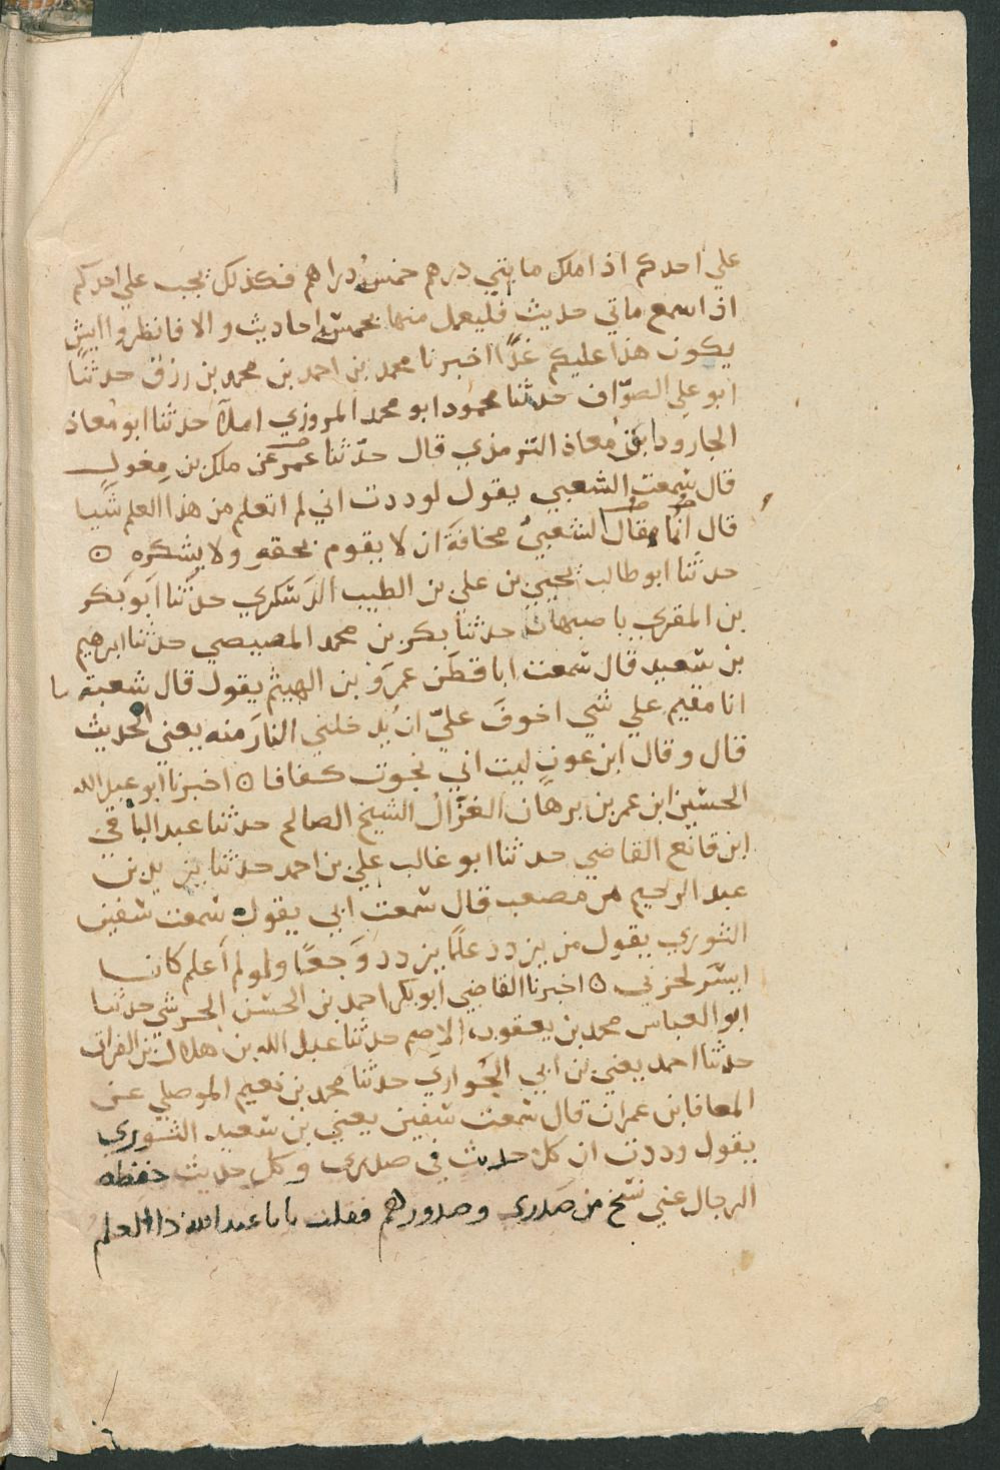 علي احدكم اذا ملك مايتي درهم خمسة دراهم فكذلك يجب علي احدكم
اذا سمع مايتي حديث فليعمل منها بخمسة احاديث والا فانظروا ايش
يكون هذا عليكم غدًا اخبرنا محمد بن احمد بن محمد بن رزق حدثنا
ابو علي الصوّاف حدثنا محمود ابو محمد المروزي املآ حدثنا ابو معاذ
الجارود بن معاذ الترمذي قال حدّثنا عمر عن ملك بن مغول
قال سمعت الشعبي يقول لوددت اني لم اتعلم من هذا العلم شيا
قال انما قال الشعبيُ مخافةَ ان لا يقوم بحقه ولا يشكره ه
حدثنا ابو طالب يحيي بن علي بن الطيب الدسكري حدثنا ابو بكر
بن المقري باصبهان حدثنا بكر بن محمد المصيصي حدثنا ابرهيم
بن سعيد قال سمعت ابا قطن عمرو بن الهيثم يقول قال شعبة ما
انا مقيم علي شي اخوفَ عليّ ان يدخلني النارَ منه يعني الحديث
قال وقال ابن عونٍ ليت اني نجوت كفافا ه اخبرنا ابو عبد الله
الحسين ابن عمر بن برهان الغزّال الشيخ الصالح حدثنا عبد الباقي
ابن قانع القاضي حدثنا ابو غالب علي بن احمد حدثنا يزيد بن
عبد الرحيم بن مصعب قال سمعت ابي يقول سمعت سفين
الثوري يقول من يزدد علمًا يزدد وَجعًا ولو لم اَعلم كان
ايسَر لحزني ه اخبرنا القاضي ابو بكر احمد بن الحسن الحرشي حدثنا
ابو العباس محمد بن يعقوب الاصم حدثنا عبد الله بن هلال بن الفرات
حدثنا احمد يعني بن ابي الحواري حدثنا محمد بن نعيم الموصلي عن
المعافا بن عمران قال سمعت سفين يعني بن سعيد الثوري
يقول وددت ان كل حديث في صدري وكل حديث حفظه
الرجال عني نسخ من صدري وصدورهم فقلت يابا عبد الله ذا العلم